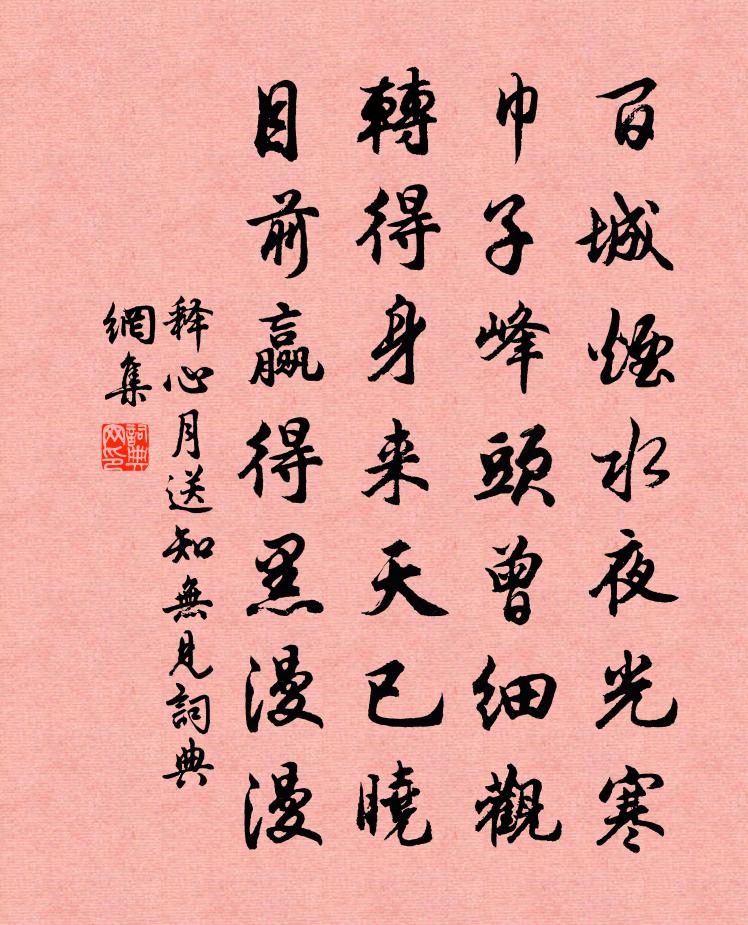 百城煙水夜光寒
巾子峰頭曾細觀
轉得身来天已曉
目前贏得黑漫漫
释心月送知無見詞典
網集
詞典
网印